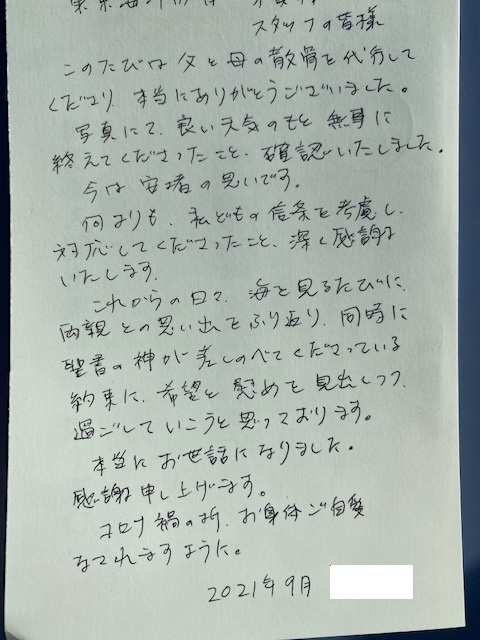 スタッフの皆様
このたびは父と母の散骨を代行して
くださり、本当にありがとうございました。
写真にて、良い天気のもと無事に
終えてくださったこと、確認いたしました。
今は安堵の思いです。
何よりも、私どもの信条を考慮し、
対応してくださったこと、深く感謝
いたします。
これからの日々、海を見るたびに、
両親との思い出をふり返り、同時に
聖書の神が差しのべてくださっている
約束に、希望と慰めを見出しつつ、
過ごしていこうと思っております。
本当にお世話になりました。
感謝申し上げます。
コロナ禍の折、お身体ご自愛
なされますように。
2021年9月